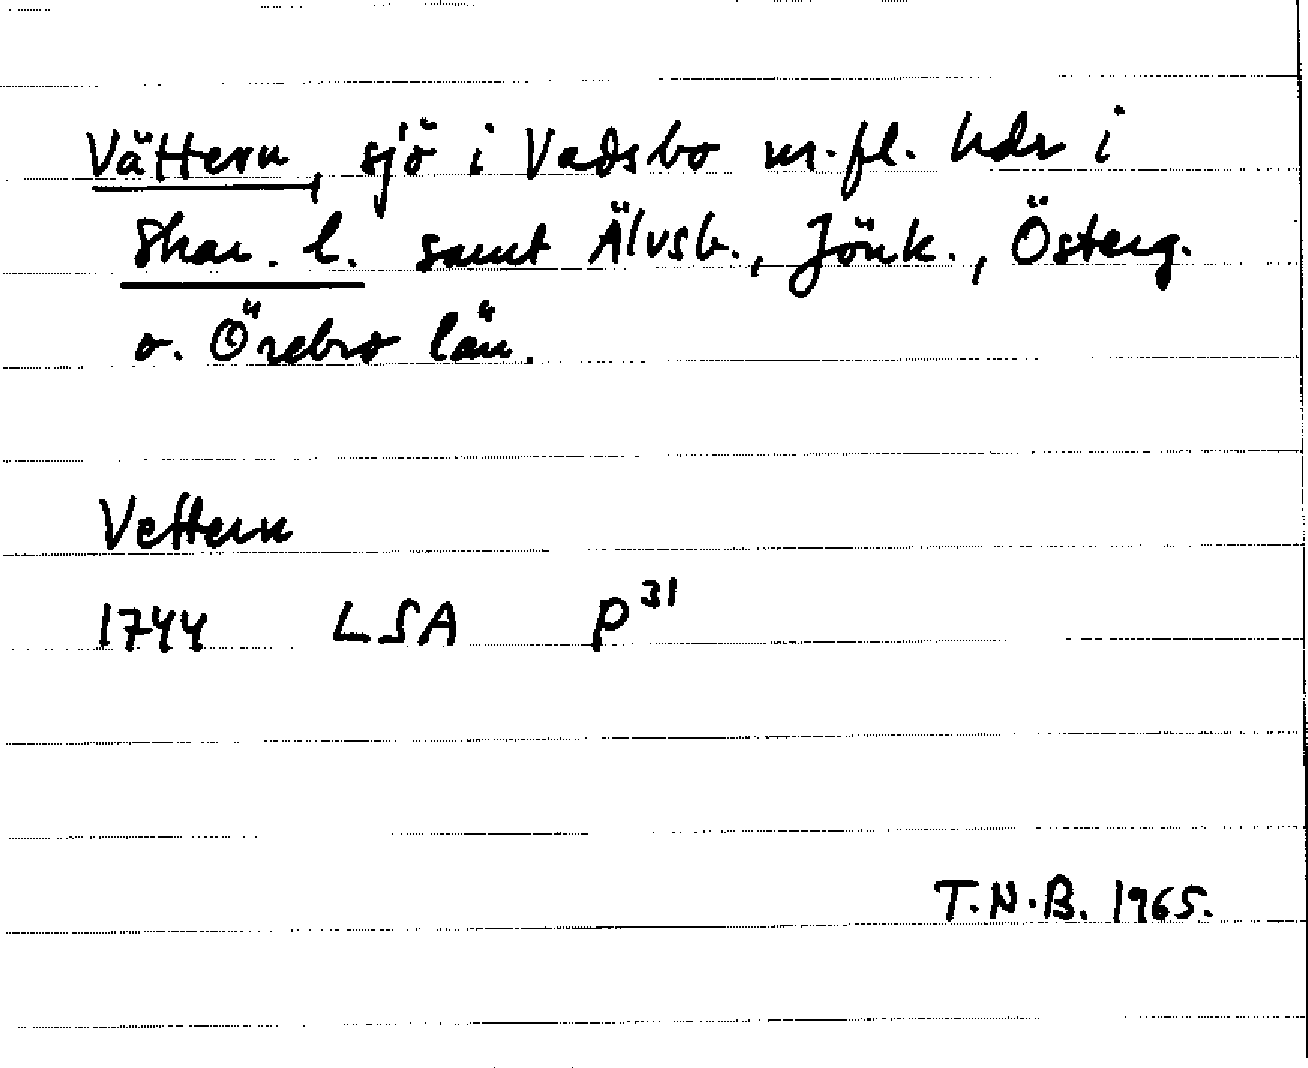 Vättern, sjö i Vadsbo m.fl. hdr i
Skar. l. samt Älvsb., Jönk., Österg.
o. Örebro län.
Vettern
1744 LSA P³¹
T.N.B. 1965.